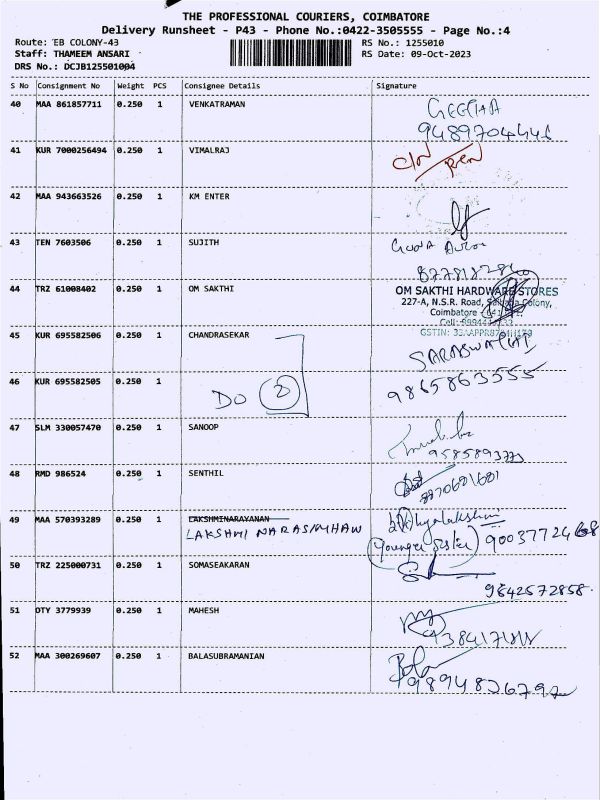 THE PROFESSIONAL COURIERS, COIMBATORE
Delivery Runsheet - P43 - Phone No.:0422-3505555 - Page No.:4
Route: EB COLONY-43 RS No.: 1255010
Staff: THAMEEM ANSARI RS Date: 09-Oct-2023
DRS No.: DCJB125501004
S No Consignment No Weight PCS Consignee Details Signature
40 MAA 861857711 0.250 1 VENKATRAMAN GEETHA
41 KUR 7000256494 0.250 1 VIMALRAJ
42 MAA 943663526 0.250 1 KM ENTER
43 TEN 7603506 0.250 1 SUJITH
44 TRZ 61008402 0.250 1 OM SAKTHI OM SAKTHI HARDWARE STORES
227-A, N.S.R. Road, Colony,
Coimbatore
45 KUR 695582506 0.250 1 CHANDRASEKAR
46 KUR 695582505 0.250 1 DO 2 9865863555
47 SLM 330057470 0.250 1 SANOOP
9585893773
48 RMD 986524 0.250 1 SENTHIL
49 MAA 570393289 0.250 1 LAKSHMINARAYANAN
LAKSHMI (Younger Sister)
50 TRZ 225000731 0.250 1 SOMASEAKARAN
9842572858
51 OTY 3779939 0.250 1 MAHESH
52 MAA 300269607 0.250 1 BALASUBRAMANIAN Bala